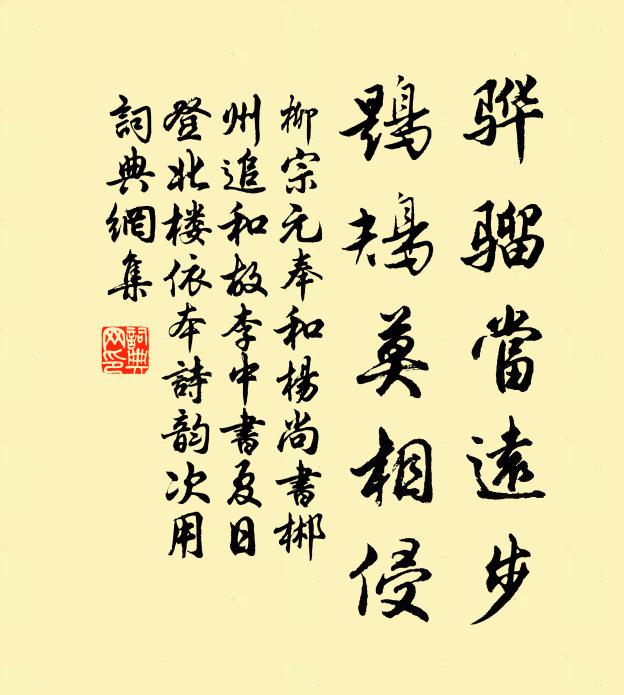 骅骝當遠步
鶗鴂莫相侵
柳宗元奉和楊尚書郴
州追和故李中書夏日
登北楼依本詩韵次用
詞典網集
詞典
网印